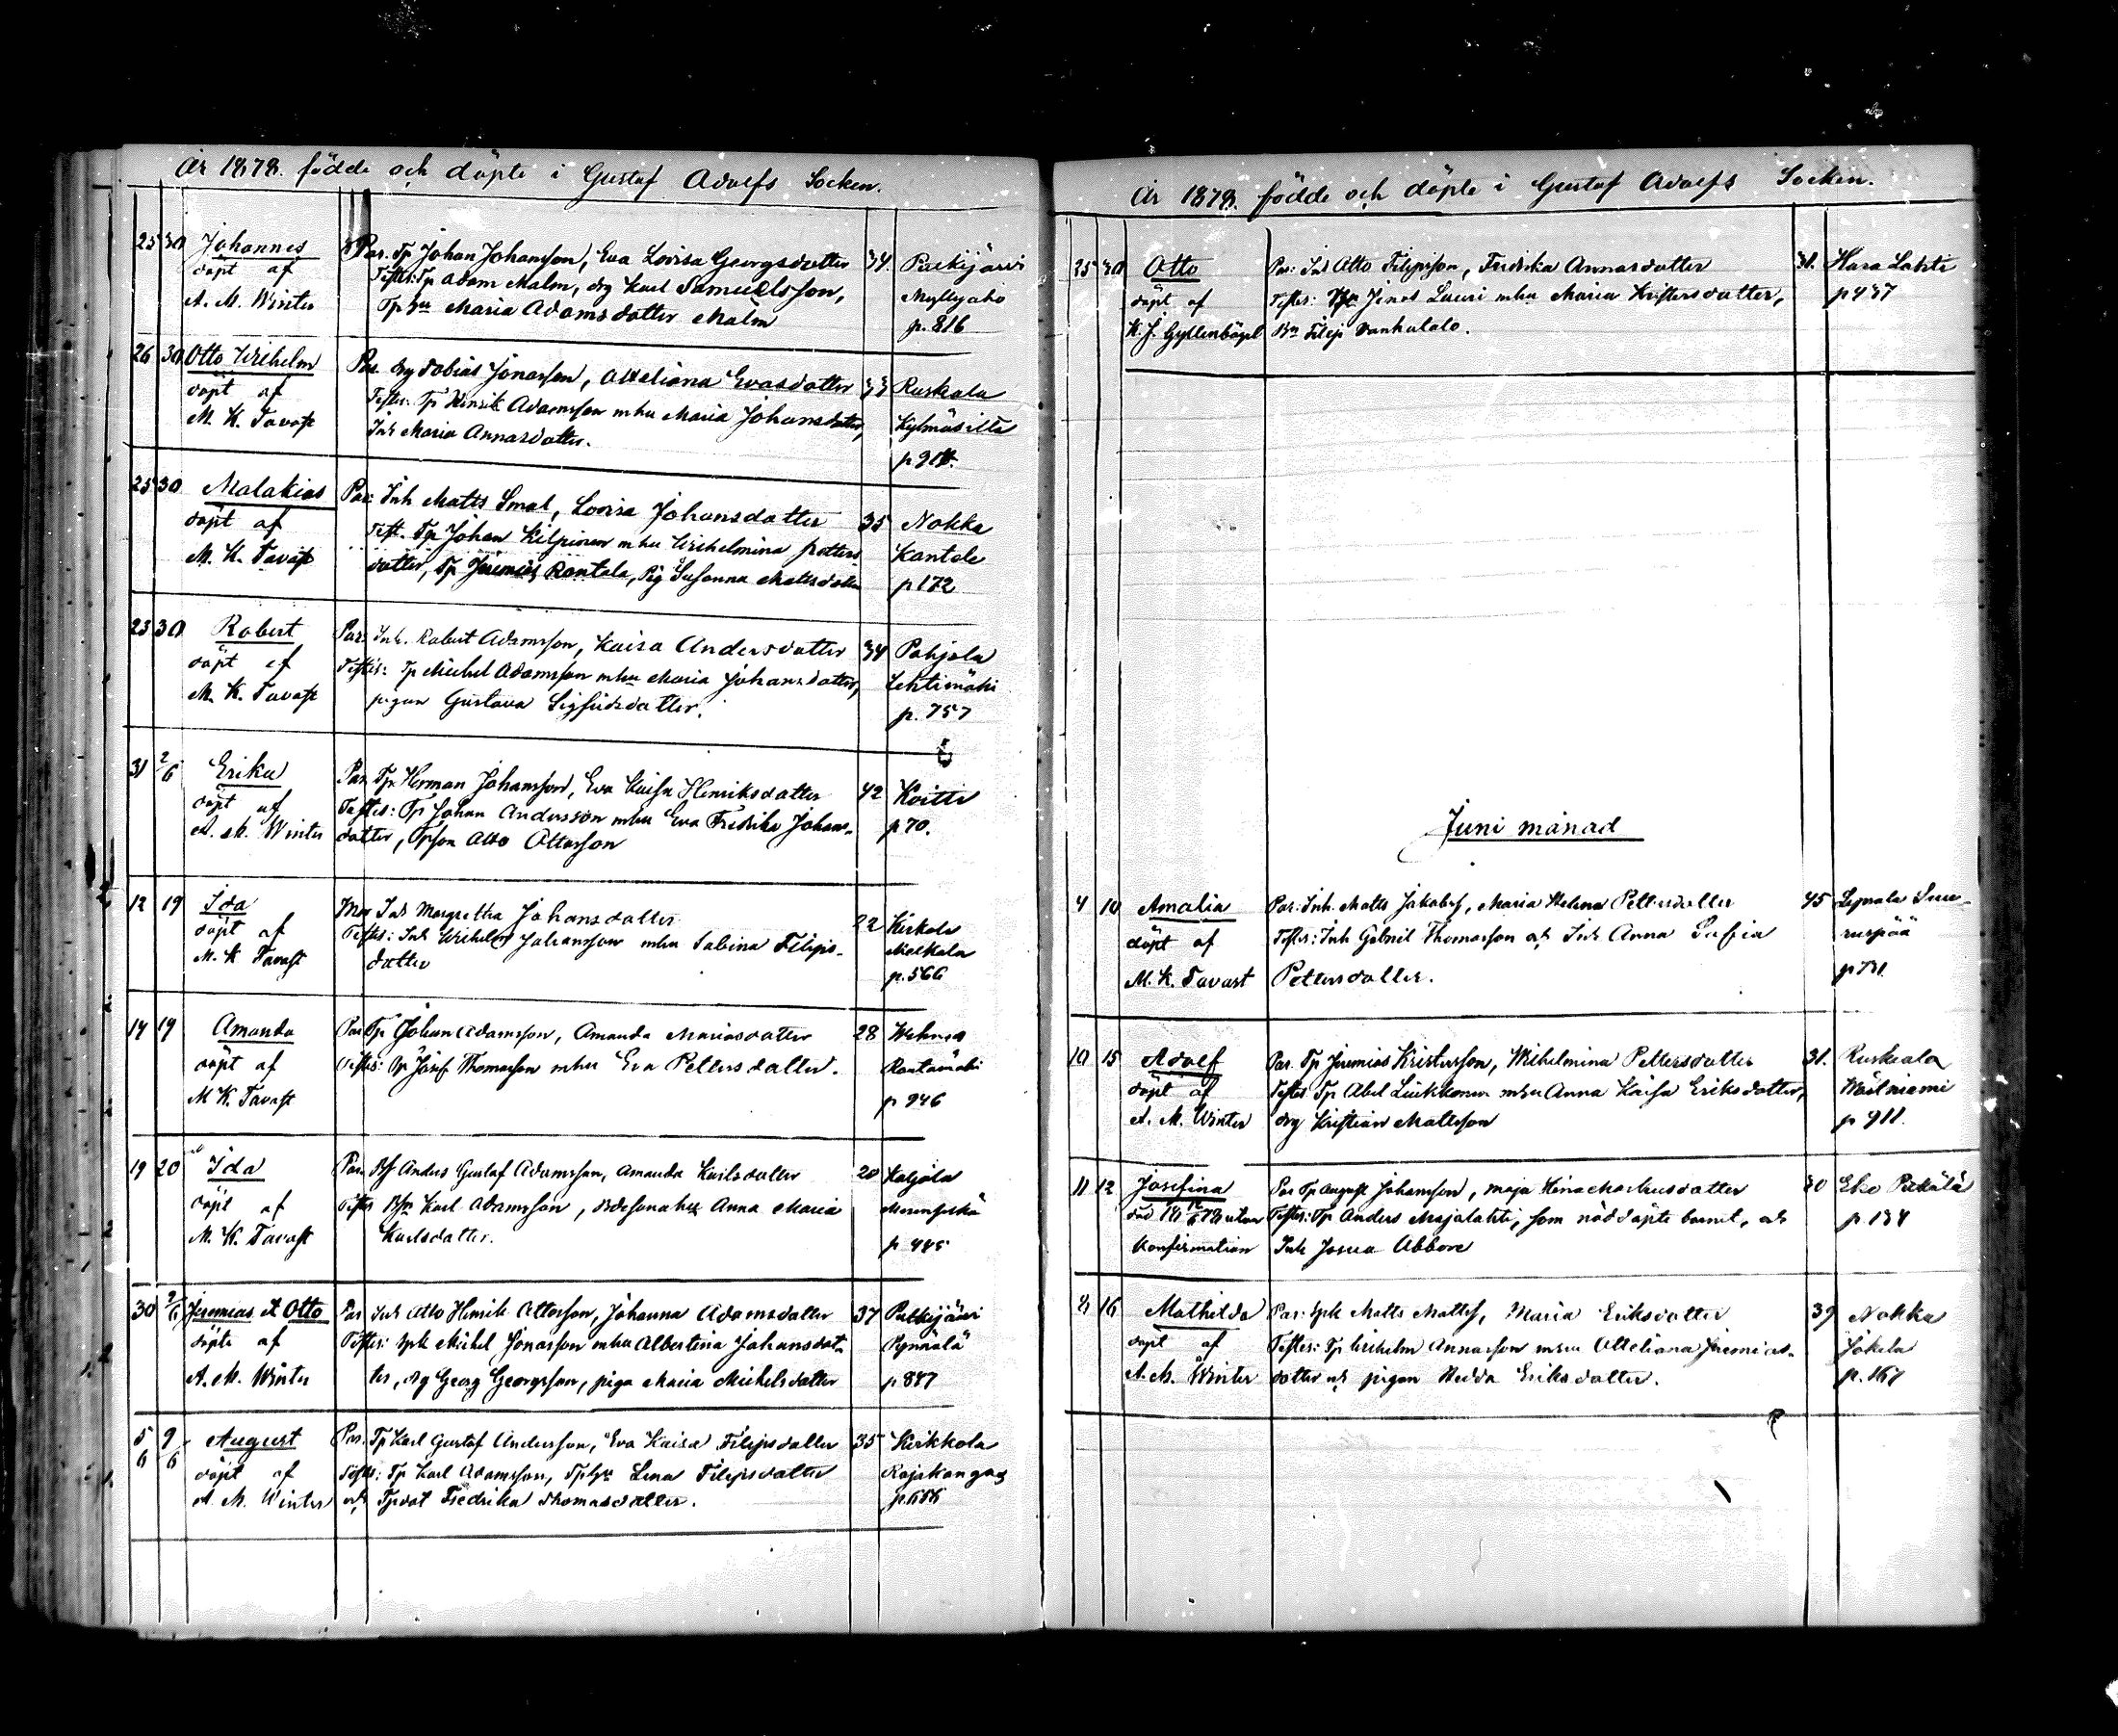 År 1878. födde och döpte i Gustaf Adolfs Socken.
25 30 Johannes Par. Tp Johan Johansson, Eva Lovisa Georgsdotter 34. Palkijärvi
döpt af Testes: Tp Adam Malm, drg Karl Samuelsson, Myllyaho
A. M. Winter Tphu Maria Adamsdotter Malm p. 816
26 30 Otto Wilhelm Par. drg Tobias Jonasson, Otteliana Evasdotter 33 Ruskala
döpt af Testes: Tp Henrik Adamsson mhu Maria Johansdotter, Kylmäsilta
M. K. Tavast Inh Maria Annasdotter.
25 30 Malakias Par: Inh Matts Smal, Lovisa Johansdotter 35 Nokka
döpt af Test. Tp Johan Kilpinen mhu Wilhelmina Petters Kantele
M. K. Tavast dotter, Tp Jeremias Rantala, Pig Susanna Mattsdotter p 172
23 30 Robert Par. Inh. Robert Adamsson, Kaisa Andersdotter 34 Pohjola
döpt af Testes: Tp Michel Adamsson mhu Maria Johansdotter, Lehtimäki
M. K. Tavast pigan Gustava Sigfridsdotter. p. 757
31 2/6 Erika Par. Tp Herman Johansson, Eva Kaisa Henriksdotter 42 Koitti
döpt af Testes: Tp Johan Andersson mhu Eva Fredrika Johans-
A. M. Winter dotter, Tpson Otto Ottosson p 70.
12 19 Ida Inh Margretha Johansdotter 22 Kirkola
döpt af Testes: Inh Wilhelm Johansson mhu Sabina Filips-
M. K Tavast dotter p. 566
14 19 Amanda Par Tp Johan Adamsson, Amanda Mariasdotter 28
döpt af Testes: Tp Josef Thomasson mhu Eva Pettersdotter. Rautamäki
M K. Tavast p 946
19 20 Ida Par. Anders Gustaf Adamsson, Amanda Karlsdotter 20 Kaljola
döpt af Testes Karl Adamsson, Anna Maria
M. K. Tavast Karlsdotter. p 445
30 2/6 Jeremias et Otto Par Inh Otto Henrik Ottosson, Johanna Adamsdotter 37 Palkijärvi
döpte af Testes: Spk Michel Jonasson mhu Albertina Johansdot- Pynnälä
A. M. Winter ter, drg Georg Georgsson, piga Maria Michelsdotter p 847
5/6 9/6 August Par. Tp Karl Gustaf Andersson, Eva Kaisa Filipsdotter 35 Kirkkola
döpt af Testes: Tp Karl Adamsson, Tphu Lena Filipsdotter Rajakangas
A. M. Winter och Tpdot Fredrika Thomasdotter.
År 1878. födde och döpte i Gustaf Adolfs Socken.
25 30 Otto Par: Inh Otto Filipsson, Fredrika Annasdotter 31. Hara Lahti
döpt af Testes: Jonas Lauri mhu Maria Kristersdotter, p 437
K. J. Gyllenbögel Bn Filip Vanhatalo.
Juni månad
4 10 Amalia Par: Inh. Matts Jakobss, Maria Helena Pettersdotter 45
döpt af Testes: Inh Gabriel Thomasson och Inh Anna Sofia
M. K. Tavast Pettersdotter.
10 15 Adolf Par. Tp Jeremias Kristersson, Wilhelmina Pettersdotter 31. Ruskeala
döpt af Testes Tp Abel Liukkonen mhu Anna Kaisa Eriksdotter,
A. M. Winter drg Kristian Mattsson p 911.
11 12 Josefina Par Tp August Johansson, Maja Stina Markusdotter 30 Eko Pekälä
död 12/6 78 utan Testes: Tp Anders Majalahti, som nöddöpte barnet, och p. 134
konfirmation Inh Josua Abbore
8 16 Mathilda Par: Spk Matts Mattss, Maria Eriksdotter 39 Nokka
döpt af Testes: Tp Wilhelm Annasson mhu Otteliana Jeremias- Jokela
A. M. Winter dotter och pigan Hedda Eriksdotter. p. 167